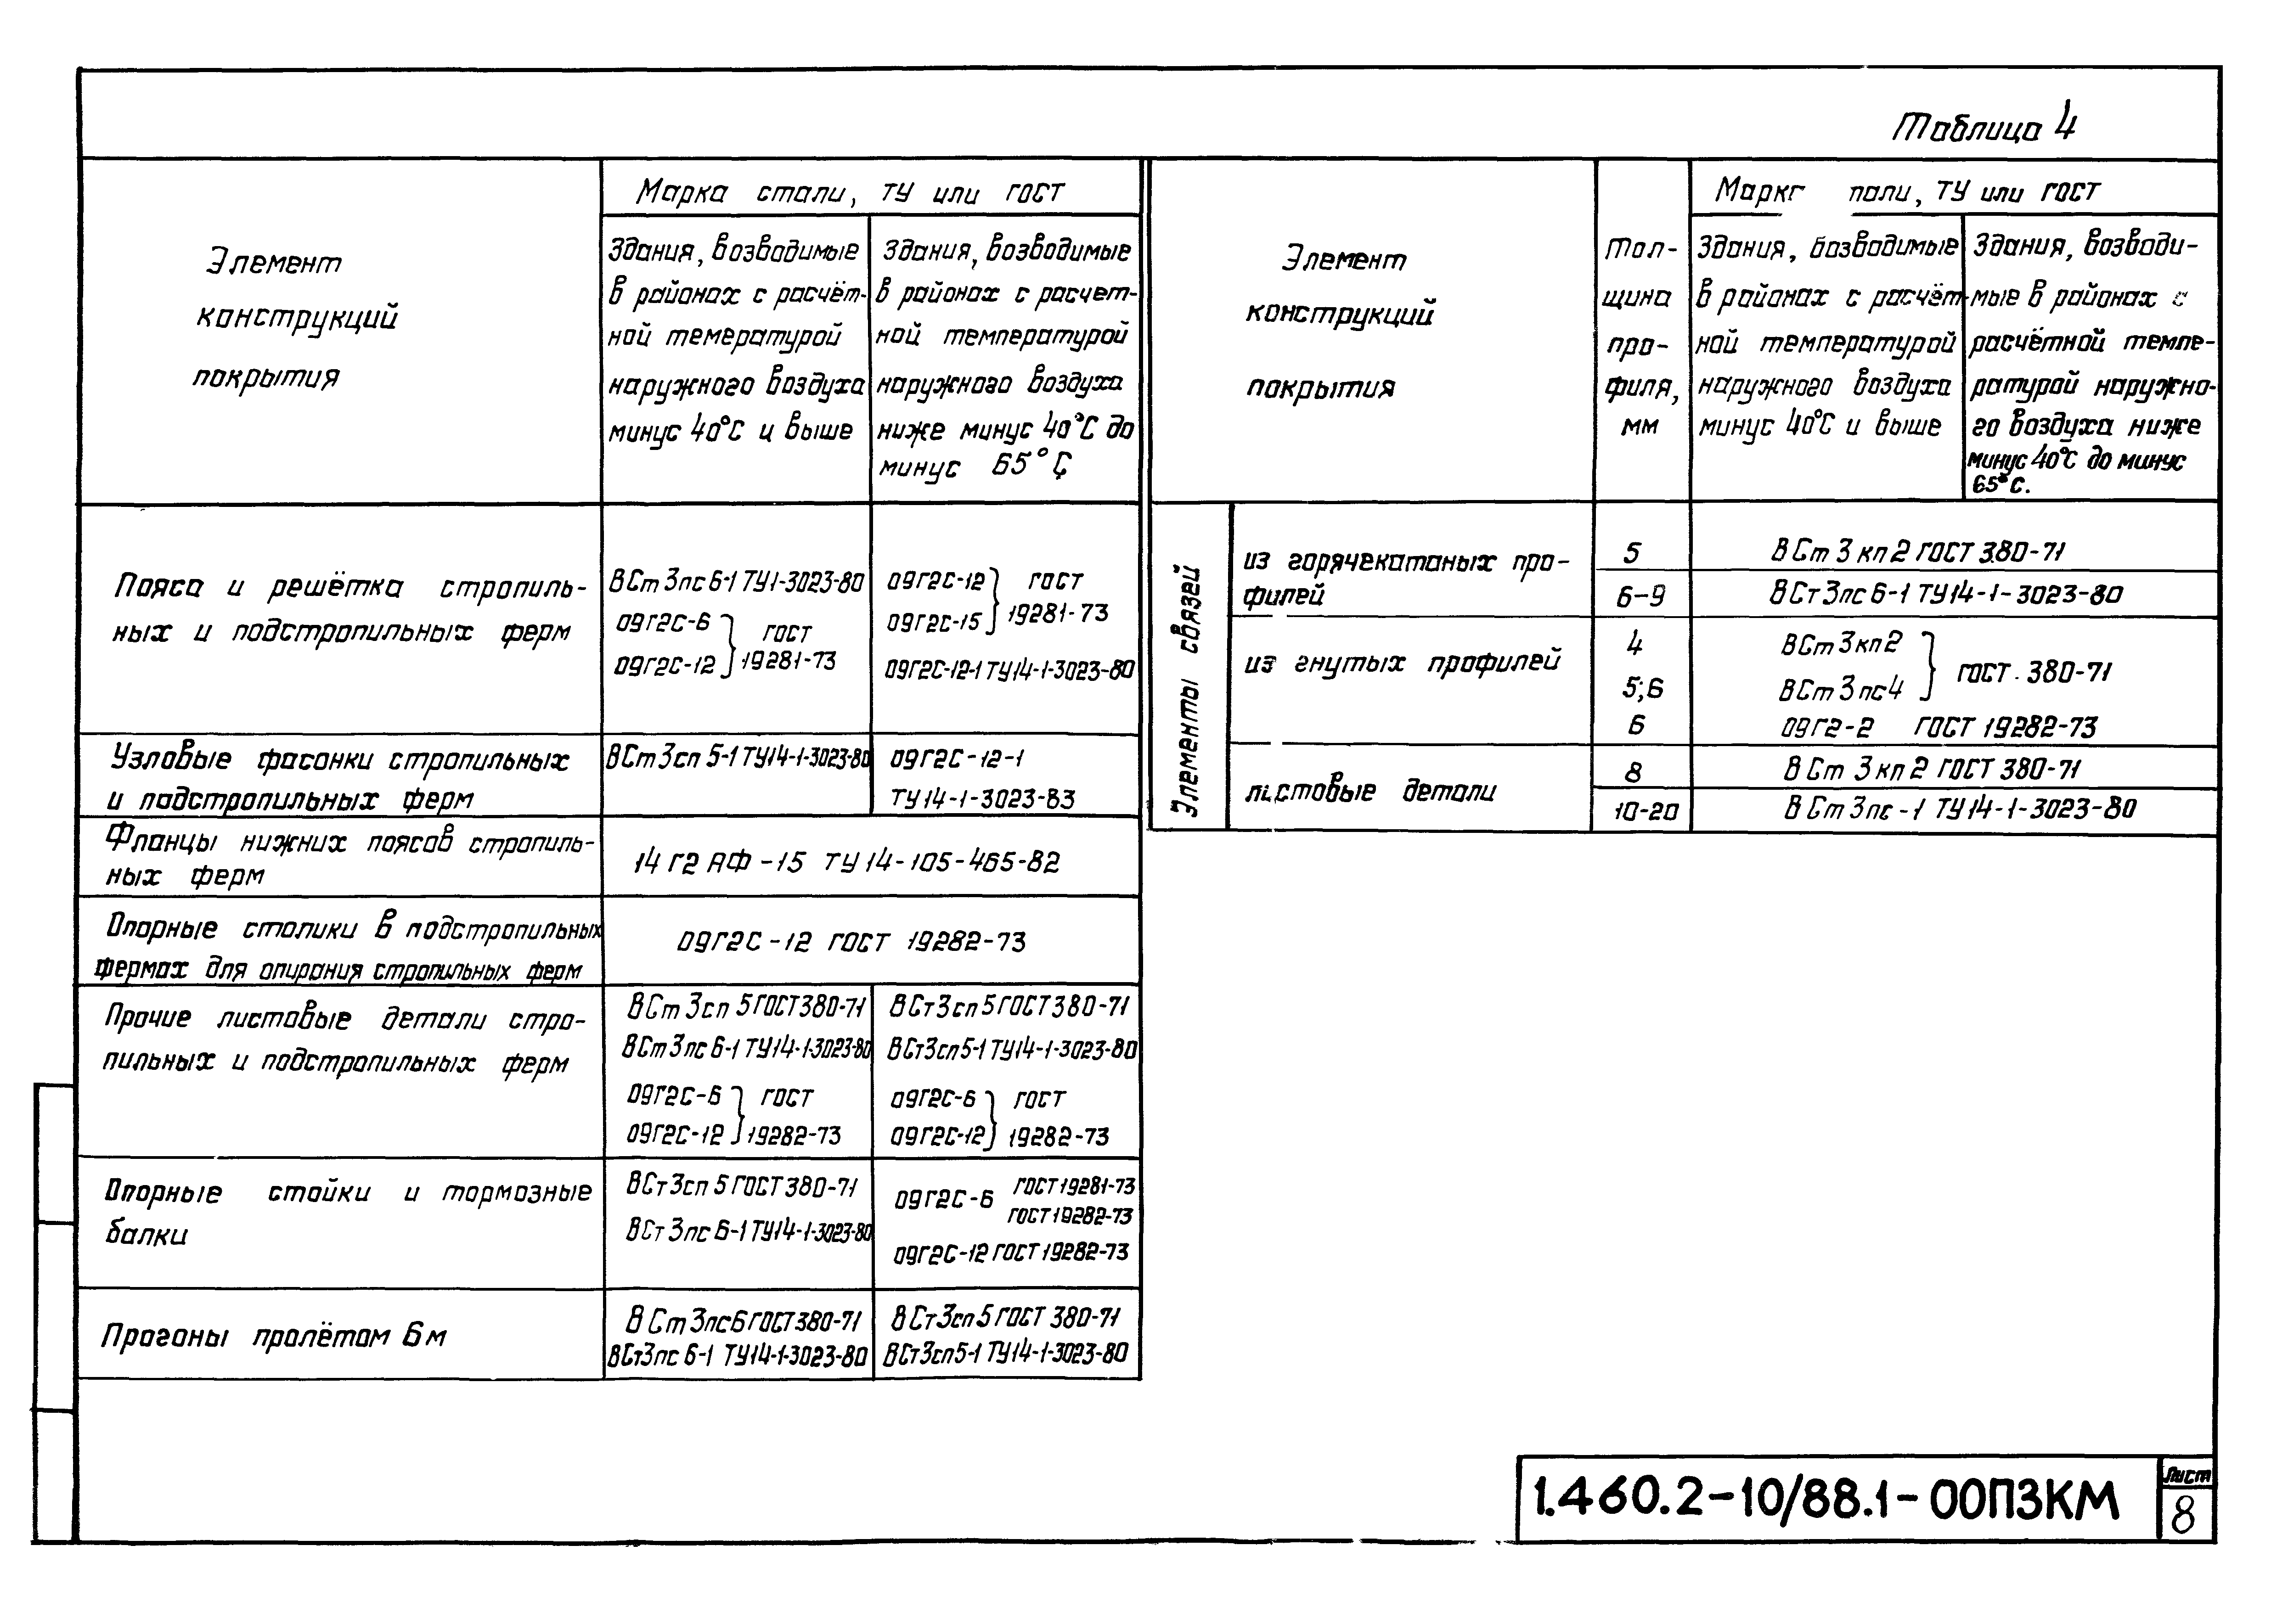 Таблица 4
Элемент
конструкций
покрытия
Марка стали, ТУ или ГОСТ
Здания, возводимые
в районах с расчёт-
ной темературой
наружного воздуха
минус 40°С и выше
Здания, возводимые
в районах с расчет-
ной температурой
наружного воздуха
ниже минус 40°С до
минус 65°С
Пояса и решётка стропиль-
ных и подстропильных ферм
ВСт3пс6-1 ТУ1-3023-80
09Г2С-6
09Г2С-12
ГОСТ
19281-73
09Г2С-12
09Г2С-15
ГОСТ
19281-73
09Г2С-12-1 ТУ14-1-3023-80
Узловые фасонки стропильных
и подстропильных ферм
ВСт3сп5-1 ТУ14-1-3023-80
09Г2С-12-1
ТУ14-1-3023-83
Фланцы нижних поясов стропиль-
ных ферм
14Г2АФ-15 ТУ14-105-465-82
Опорные столики в подстропильных
фермах для опирания стропильных ферм
09Г2С-12 ГОСТ 19282-73
Прочие листовые детали стро-
пильных и подстропильных ферм
ВСт3сп5 ГОСТ380-71
ВСт3пс6-1 ТУ14-1-3023-80
09Г2С-6
09Г2С-12
ГОСТ
19282-73
ВСт3сп5 ГОСТ380-71
ВСт3сп5-1 ТУ14-1-3023-80
09Г2С-6
09Г2С-12
ГОСТ
19282-73
Опорные стойки и тормозные
балки
ВСт3сп5 ГОСТ380-71
ВСт3пс6-1 ТУ14-1-3023-80
09Г2С-6
ГОСТ19281-73
ГОСТ19282-73
09Г2С-12 ГОСТ19282-73
Прогоны пролётом 6м
ВСт3пс6 ГОСТ380-71
ВСт3пс6-1 ТУ14-1-3023-80
ВСт3сп5 ГОСТ 380-71
ВСт3сп5-1 ТУ14-1-3023-80
Элемент
конструкций
покрытия
Тол-
щина
про-
филя,
мм
ТУ или ГОСТ
Здания, возводимые
в районах с расчёт-
ной температурой
наружного воздуха
минус 40°С и выше
Здания, возводи-
мые в районах с
расчётной темпе-
ратурой наружно-
го воздуха ниже
минус 40°С до минус
65°С.
Элементы связей
из горячекатаных про-
филей
5
ВСт3кп2 ГОСТ 380-71
6-9
ВСт3пс6-1 ТУ14-1-3023-80
из гнутых профилей
4
ВСт3кп2
5;6
ВСт3пс4
ГОСТ 380-71
6
09Г2-2 ГОСТ 19282-73
листовые детали
8
ВСт3кп2 ГОСТ 380-71
10-20
ВСт3пс-1 ТУ14-1-3023-80
1.460.2-10/88.1-00ПЗКМ
Лист
8